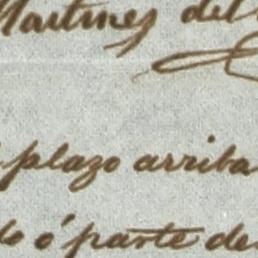 Martines del
plazo arriba
do ó parte de